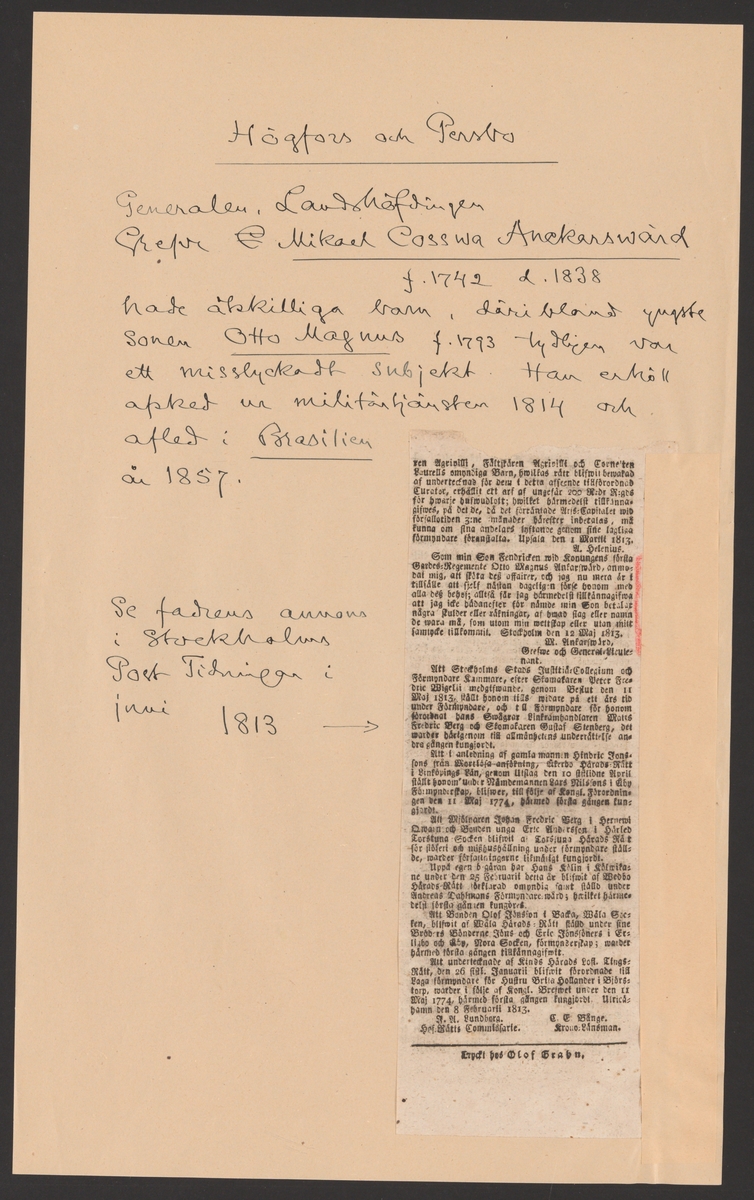 Högfors och Persbo
Generalen, Landshöfdingen
Grefve Mikael Cosswa Anckarswärd
f. 1742 d. 1838
hade åtskilliga barn, däribland yngste
sonen Otto Magnus f. 1793 tydligen var
ett misslyckadt subjekt. Han erhöll
afsked ur militärtjänsten 1814 och
afled i Brasilien
år 1857.
Se fadrens annons
i Stockholms
Post Tidningar i
juni 1813 →
ren Agriolisi, Fältskären Agriolisi och Corneten
Laurells omyndiga Barn, hwilkas rätt blifwit bewakad
af undertecknad för dem i detta afseende tillförordnad
Curator, erhållit ett arf af ungefär 200 R:dr R:gds
för hwarje hufwudlott; hwilket härmedelst tillkänna-
gifwes, på det de, då det förräntade Arfs-Capitalet wid
förfallotiden 3:ne månader härefter inbetalas, må
kunna om sina andelars lyftande genom sine lagliga
förmyndare föranstalta. Upsala den 1 Martii 1813.
A. Helenius.
Som min Son Fendricken wid Konungens första
Gardes-Regemente Otto Magnus Ankarswärd, anmo-
dat mig, att sköta deß affairer, och jag nu mera är i
tillfälle att sjelf nästan dageligen förse honom med
alla deß behof; alltså får jag härmedelst tillkännagifwa
att jag icke hädanefter för nämde min Son betalar
några skulder eller räkningar, af hwad slag eller namn
de wara må, som utom min wetskap eller utan mitt
samtycke tillkommit. Stockholm den 12 Maj 1813.
M. Ankarswärd,
Grefwe och General-Lieute-
nant.
Att Stockholms Stads Justitiæ-Collegium och
Förmyndare Kammare, efter Skomakaren Peter Fre-
dric Wigelii medgifwande, genom Beslut den 11
Maj 1813, ställt honom tills widare på ett års tid
under Förmyndare, och till Förmyndare för honom
förordnat hans Swågrar Linkramhandlaren Matts
Fredric Berg och Skomakaren Gustaf Stenberg, det
warder härigenom till allmänhetens underrättelse an-
dra gången kungjordt.
Att i anledning af gamla mannen Hindric Jons-
sons från Mortlösa ansökning, Åkerbo Härads-Rätt
i Linköpings Län, genom Utslag den 10 sistlidne April
ställt honom under Nämdemannen Lars Nilssons i Gby
Förmynderskap, blifwer, till följe af Kongl. Förordnin-
gen den 11 Maj 1774, härmed första gången kun-
gjordt.
Att Mjölnaren Johan Fredric Berg i Hernewi
Qwarn och Bonden unga Eric Andersson i Härled
Torstuna Socken blifwit af Torstuna Härads Rätt
för slöseri och mißhushållning under förmyndare ställ-
de, warder författningarne likmätigt kungjordt.
Uppå egen begäran har Hans Kölin i Kölwika-
ne under den 25 Februarii detta år blifwit af Wedbo
Härads-Rätt förklarad omyndig samt ställd under
Andreas Dahlmans Förmyndarewård; hwilket härme-
delst första gången kungöres.
Att Bonden Olof Jönsson i Backa, Wåla Soc-
ken, blifwit af Wåla Härads-Rätt ställd under sine
Bröders Bönderne Jöns och Eric Jönssöners i Er-
likbo och Gby, Nora Socken, förmynderskap; warder
härmed första gången tillkännagifwit.
Att undertecknade af Kinds Härads Lofl. Tings-
Rätt, den 26 sistl. Januarii blifwit förordnade till
Laga förmyndare för Hustru Brita Hollander i Björs-
torp, warder i följe af Kongl. Brefwet under den 11
Maj 1774, härmed första gången kungjordt. Ulrica-
hamn den 8 Februarii 1813.
J. A. Lundborg. C. E. Wånge.
Hof-Rätts Commissarie. Krono-Länsman.
Tryckt hos Olof Grahn.